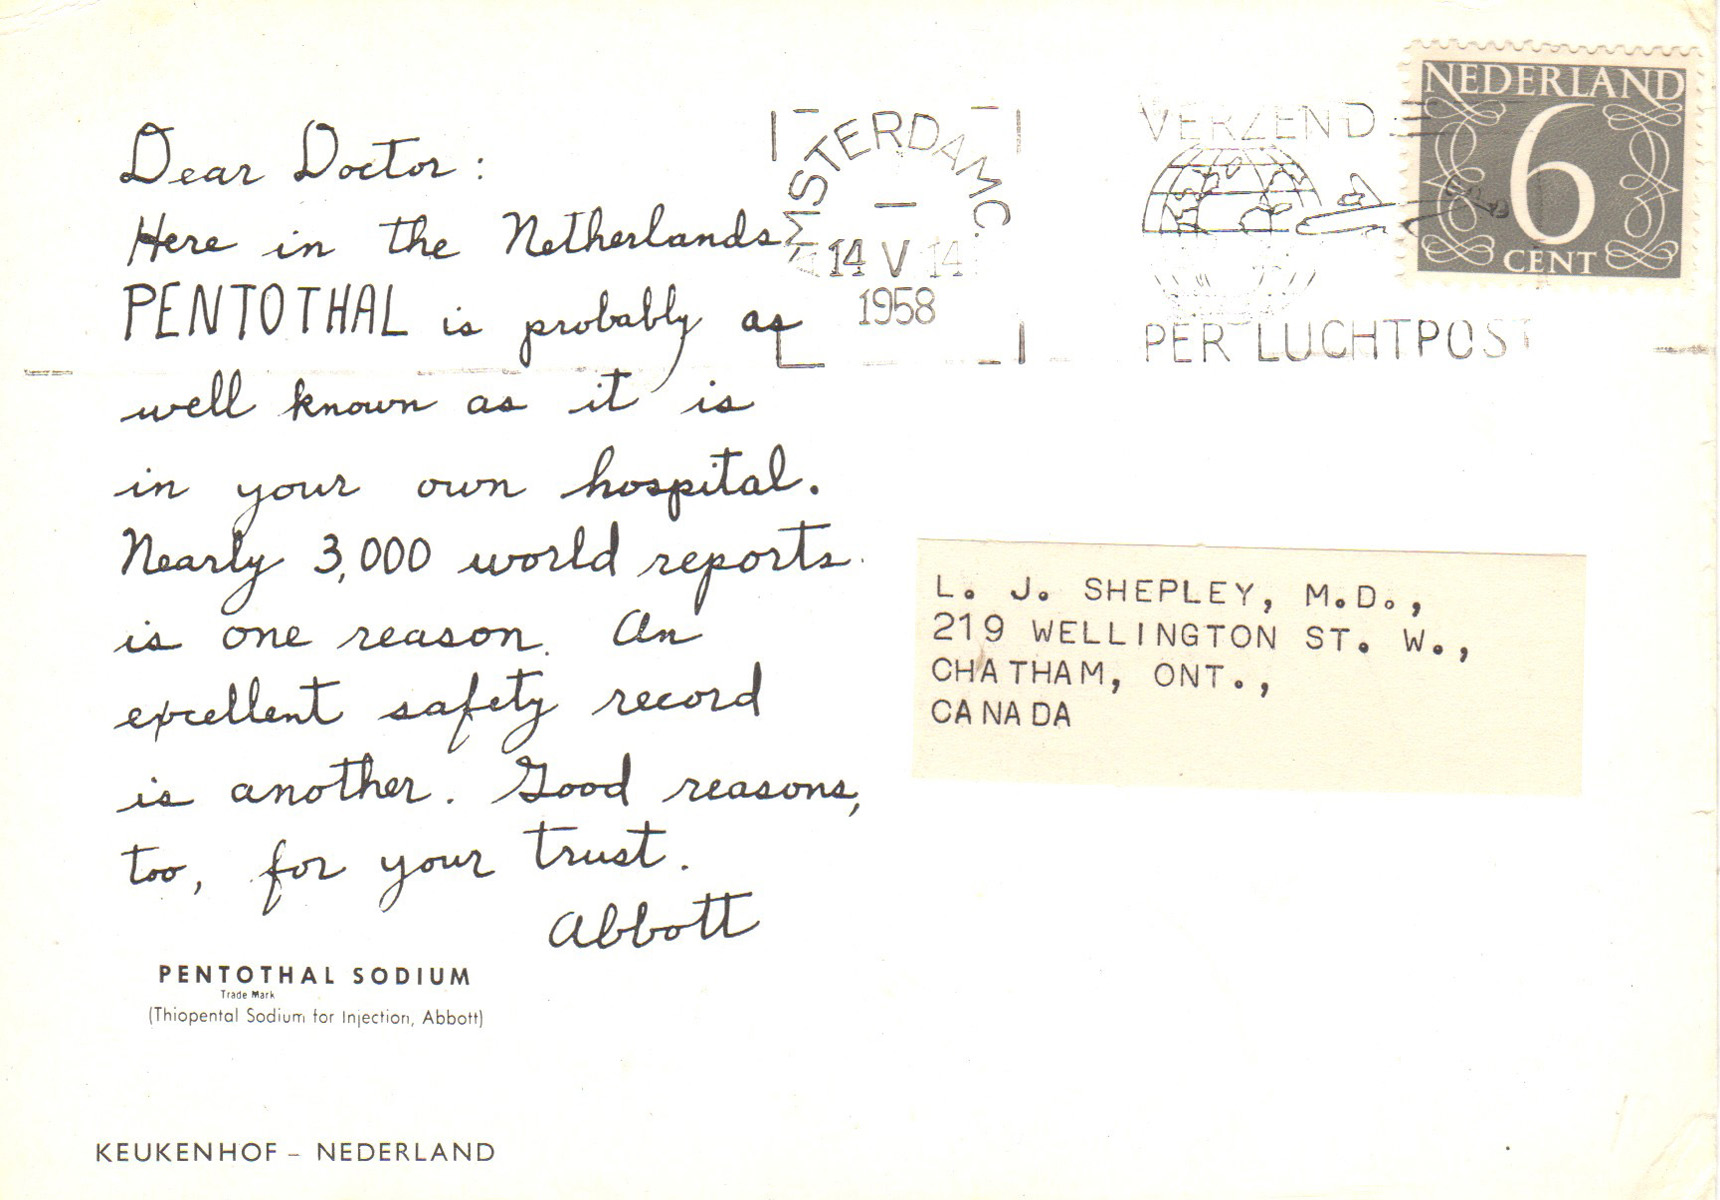 Dear Doctor:
Here in the Netherlands
PENTOTHAL is probably as
well known as it is
in your own hospital.
Nearly 3,000 world reports
is one reason. An
excellent safety record
is another. Good reasons,
too, for your trust.
Abbott
PENTOTHAL SODIUM
Trade Mark
(Thiopental Sodium for Injection, Abbott)
KEUKENHOF – NEDERLAND
AMSTERDAM C.
14 V 14
1958
VERZEND
PER LUCHTPOST
NEDERLAND
6
CENT
L. J. SHEPLEY, M.D.,
219 WELLINGTON ST. W.,
CHATHAM, ONT.,
CANADA